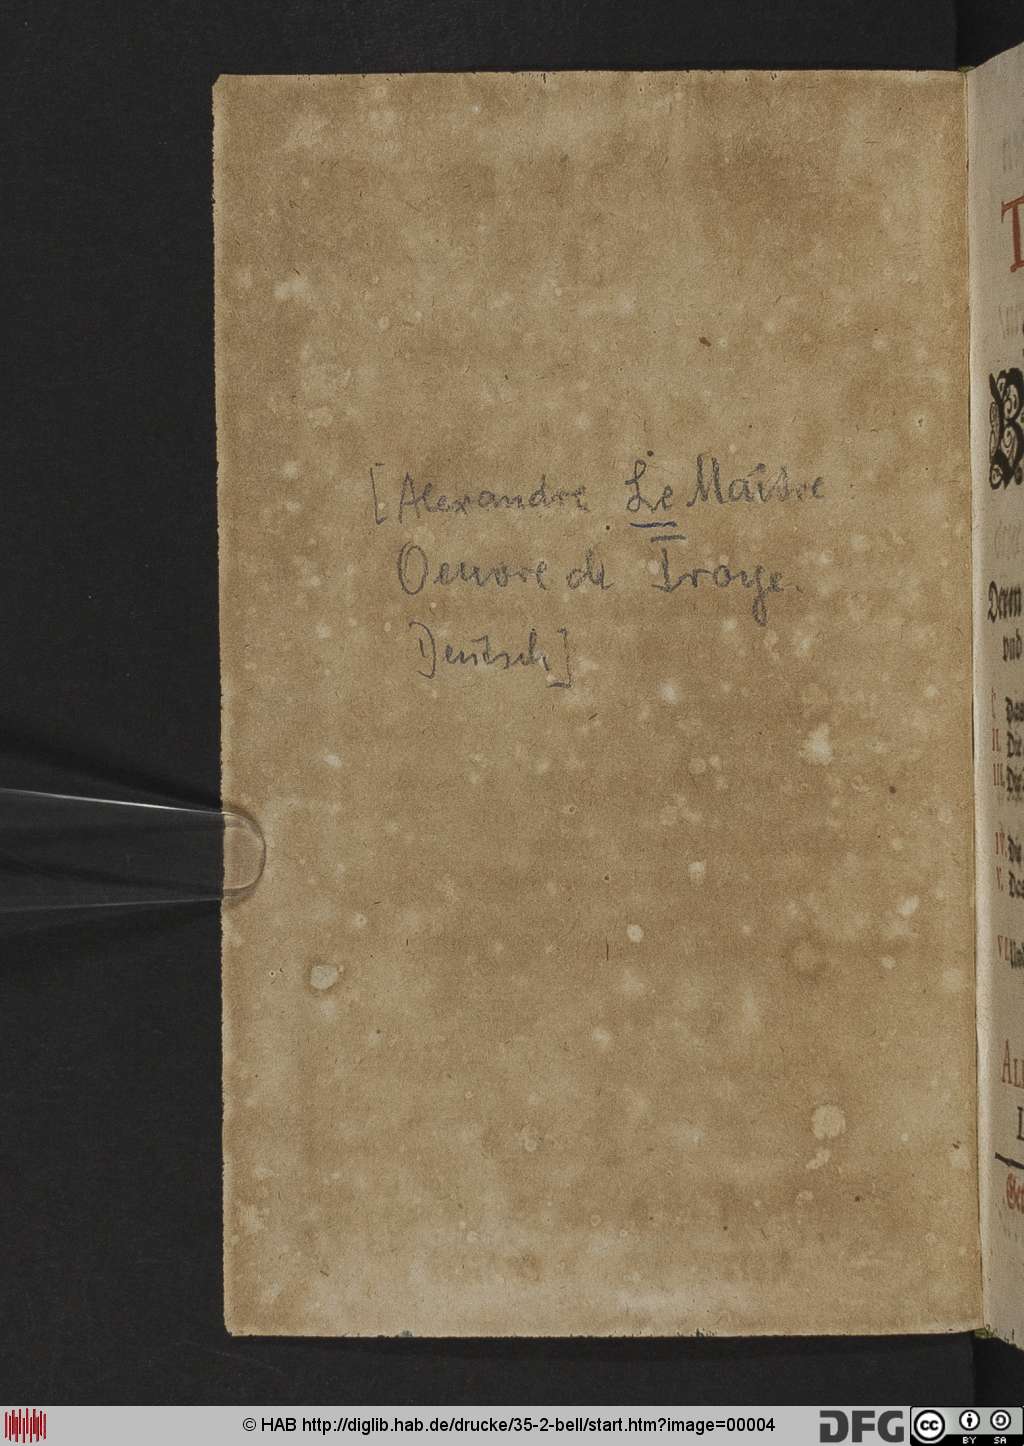 [Alexandre Le Maître
Oeuvre de Troye.
Deutsch]
Deren
vnd
I.
II. Die
III. Die
IV. Die
V.
VI.
© HAB http://diglib.hab.de/drucke/35-2-bell/start.htm?image=00004
DFG
cc BY SA